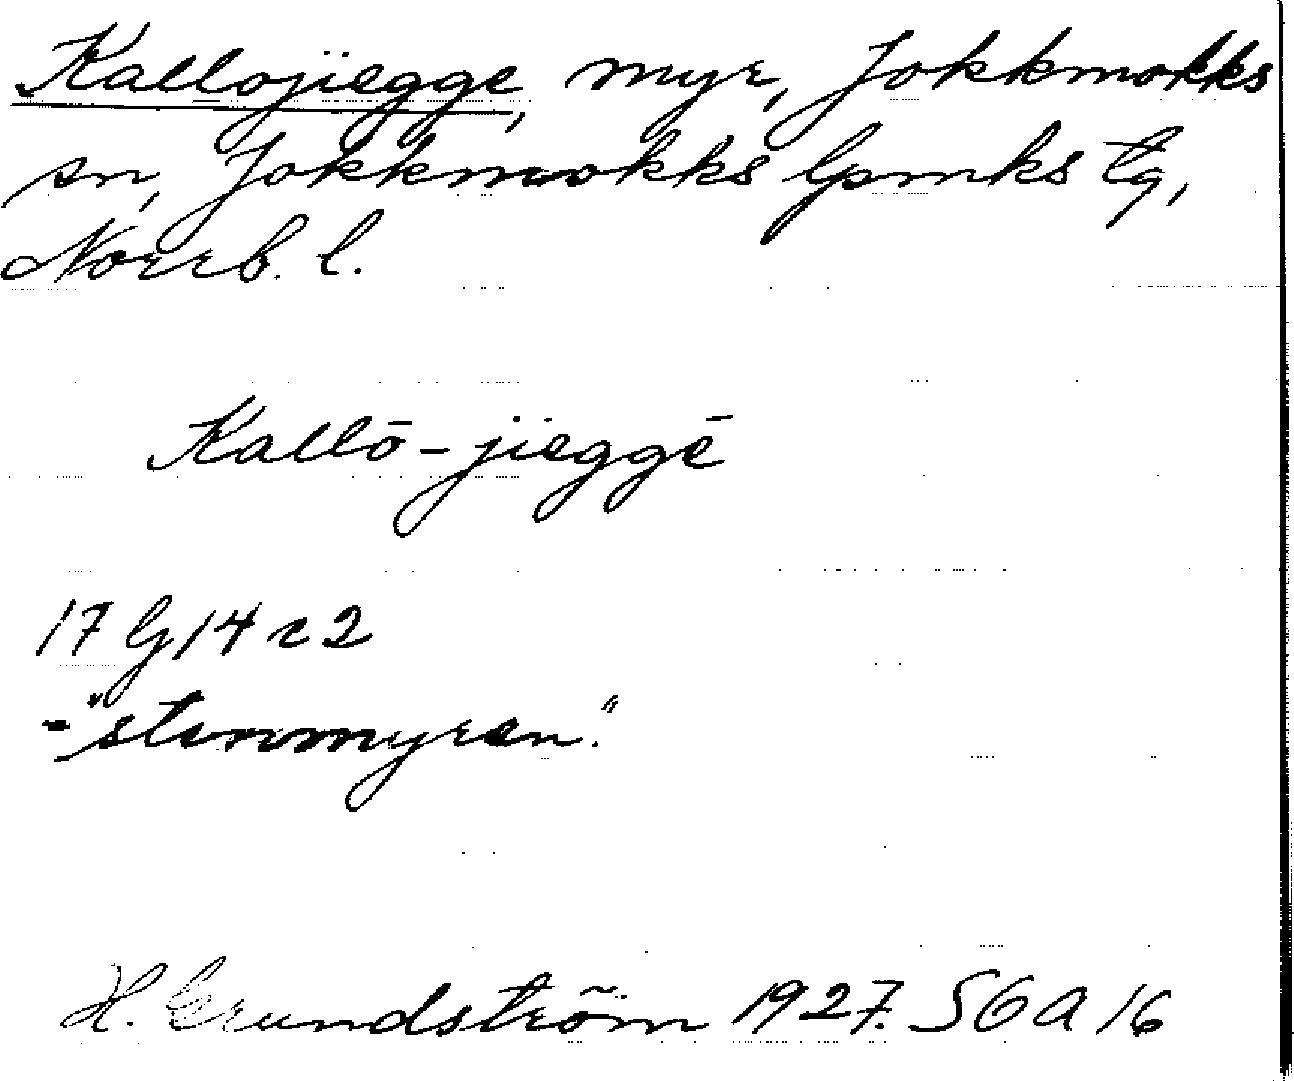 Kallojiegge, myr, Jokkmokks
sn, Jokkmokks lpmks tg,
Norrb. l.
Kallō-jieggē
17 G 14 c 2
- "stenmyren."
H. Grundström 1927. SGA 16